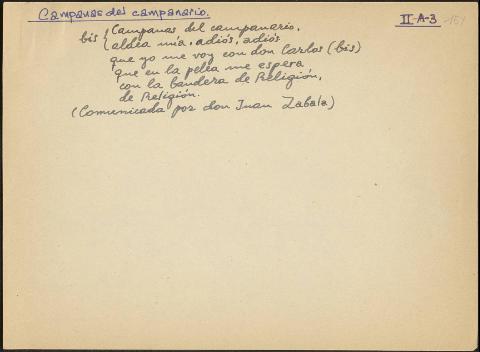 Campanas del campanario.
II-A-3 159
bis { Campanas del campanario,
aldea mía, adiós, adiós
que yo me voy con don Carlos (bis)
que en la pelea me espera
con la bandera de Religión,
de Religión.
(Comunicada por don Juan Zabala)